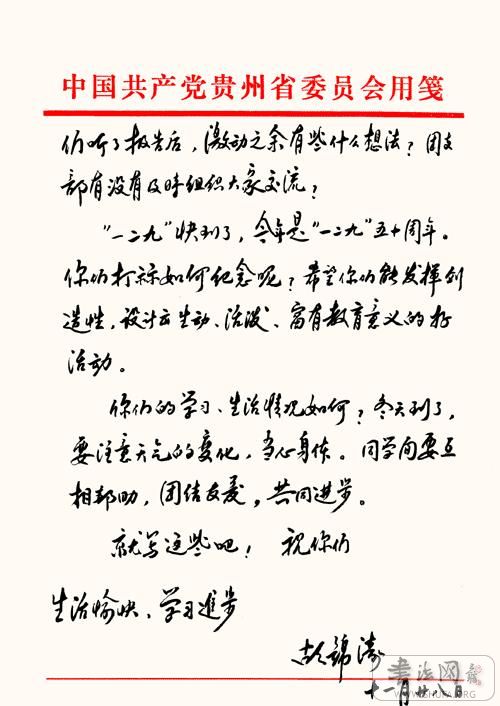 中国共产党贵州省委员会用笺
们听了报告后，激动之余有些什么想法？团支
部有没有及时组织大家交流？
“一二九”快到了，今年是“一二九”五十周年。
你们打算如何纪念呢？希望你们能发挥创
造性，设计出生动、活泼、富有教育意义的好
活动。
你们的学习、生活情况如何？冬天到了，
要注意天气的变化，当心身体。同学间要互
相帮助，团结友爱，共同进步。
就写这些吧！ 祝你们
生活愉快、学习進步
胡錦涛
十一月廿八日
书法网
WWW.SHUFA.ORG